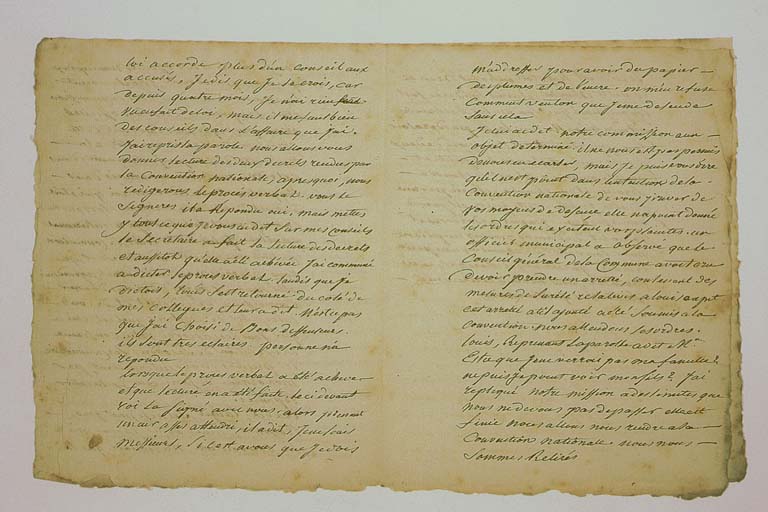 loi accorde plus d'un conseil aux
accusés, Je dis que Je le crois, car
depuis quatre mois, Je n'ai rien
mais il me faut bien
des conseils dans l'affaire que J'ai.
J'ai repris la parole nous allons vous
donner lecture des deux decrets rendus par
la Convention nationale, apres quoi, nous
redigerons le procès verbal. vous le
Signeres il a Repondu oui, mais mettes
y tout ce que Je vous ai dit Sur mes conseils
le Secretaire a fait la lecture des decrets
et aussitot qu'elle a été achevée J'ai commencé
a dicter le proces verbal tandis que Je
dictois, Louis s'est retourné du coté de
mes collegues et leur a dit N'est ce pas
que J'ai Choisi de Bons deffenseurs.
ils Sont tres eclairés personne n'a
repondu
lorsque le proces verbal a été achevé
et que lecture en a été faite le ci devant
roi la Signé avec nous. alors prenant
un air asses attendri, il a dit, Je ne sais
Messieurs, S'il est avoué que Je dois
m'addresser pour avoir du papier
des plumes et de l'encre. on m'en refuse
Comment veut on que Je me defende
Sans cela
Je lui ai dit notre commission a un
objet determiné. il ne nous est pas permis
de nous en ecarter, mais Je puis vous dire
qu'il n'est point dans l'intention de la
Convention nationale de vous priver de
vos moyens de defense elle n'a point donné
les ordres qui excitent vos plaintes. un
officier municipal a observé que le
Conseil général de la Commune avoit cru
devoir prendre un arreté, contenant des
mesures de Sureté relatives a louis
cet arreté a été ajouté a été Soumis a la
convention. Nous attendons Ses ordres.
louis, Reprenant La parole a dit
Est ce que Je ne verrai pas ma famille?
ne puis Je point voir mon fils? J'ai
repliqué notre mission a des limites que
nous ne devons pas depasser elle est
finie nous allons nous rendre a la
Convention Nationale. nous nous
Sommes Retirés